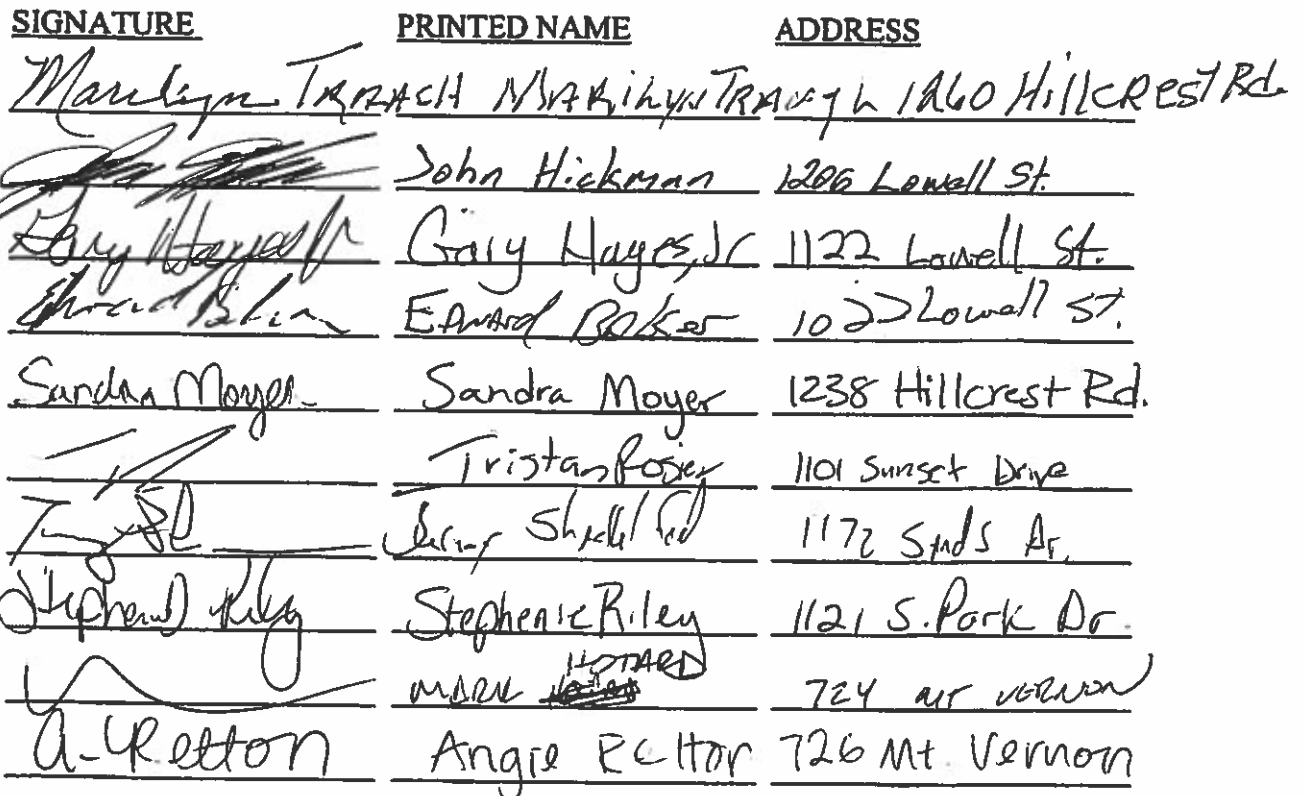 SIGNATURE PRINTED NAME ADDRESS
Marilyn MARilyN 1260 HillCREST Rd.
John Hickman 1206 Lowell St.
Gary Hayes Jr Gary Hayes, Jr 1122 Lowell St.
Edward Baker EDWARD BAKer 1022 Lowell ST.
Sandra Moyer Sandra Moyer 1238 Hillcrest Rd.
Tristan Rosier 1101 Sunset Drive
1172 Dr.
Stephenie Riley Stephenie Riley 1121 S. Park Dr.
HOWARD
MARK 724 MT VERNON
A. Retton Angie Retton 726 Mt. Vernon